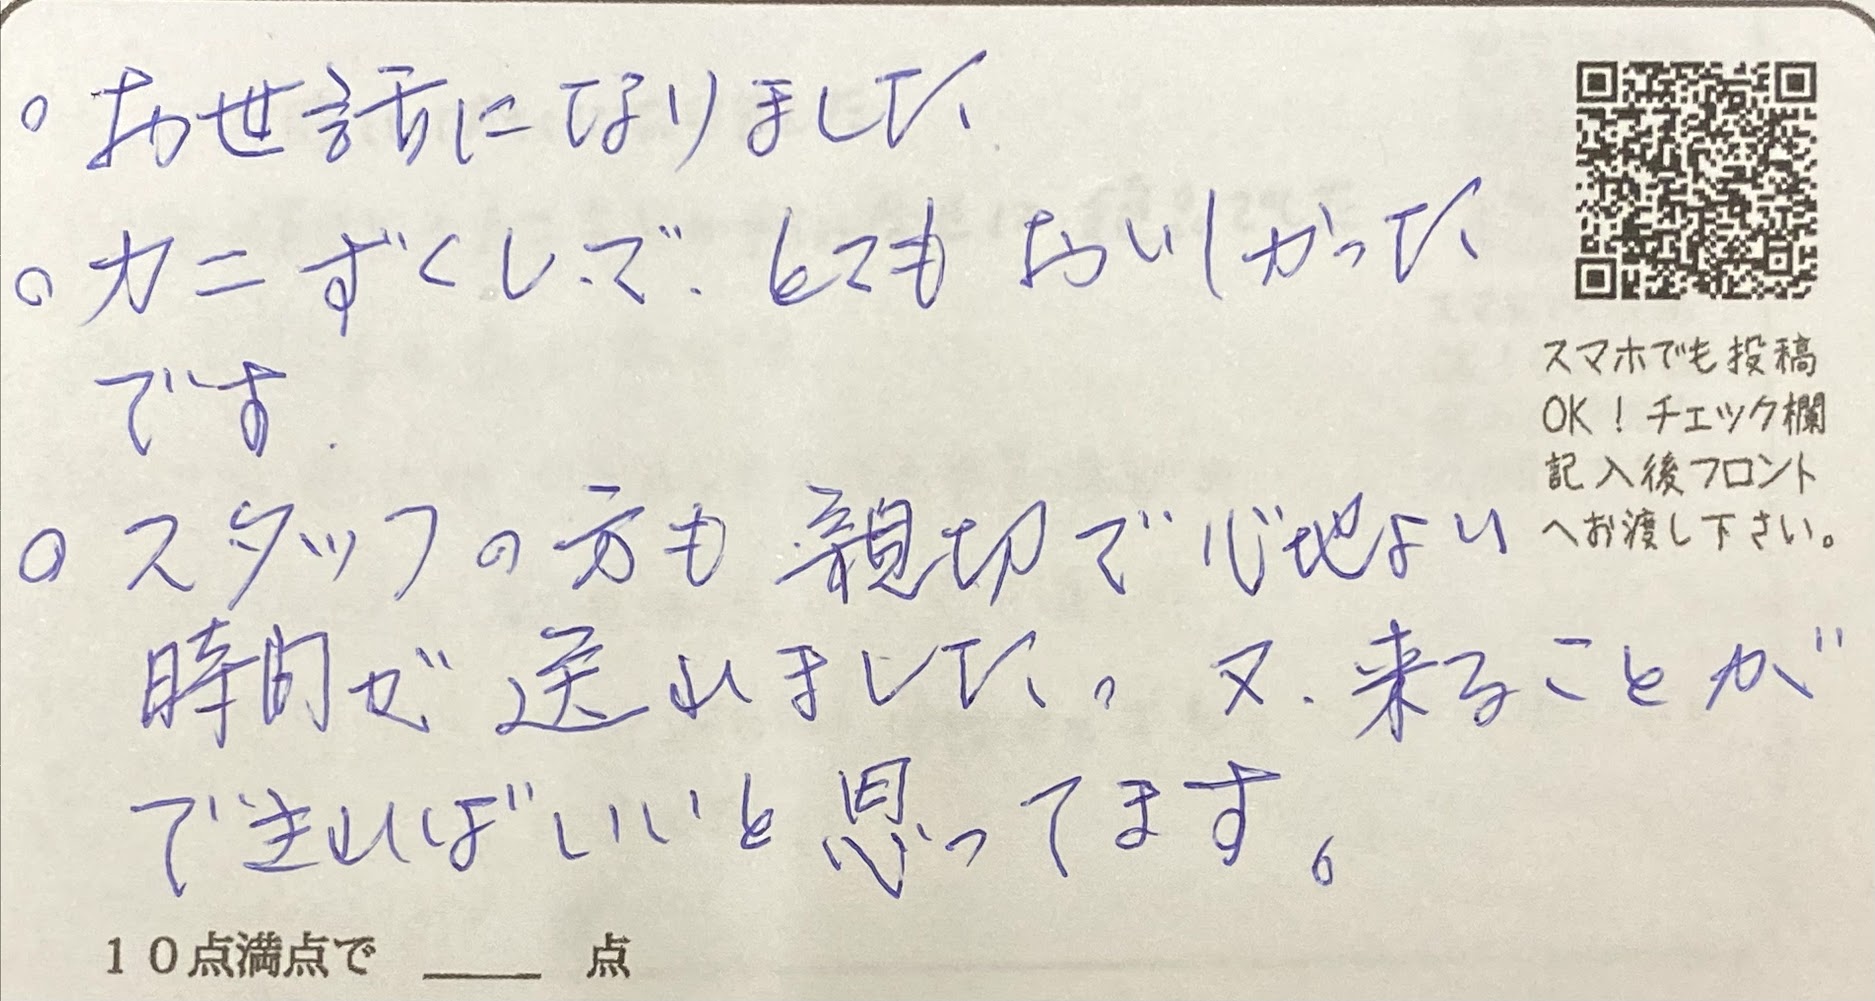 ○ お世話になりました
○ カニずくしで、とても おいしかった
です.
○ スタッフの方も 親切で 心地よい
時間が 送れました。又、来ることが
できればいいと 思ってます。
スマホでも投稿
OK！チェック欄
記入後フロント
へお渡し下さい。
１０点満点で ＿＿ 点